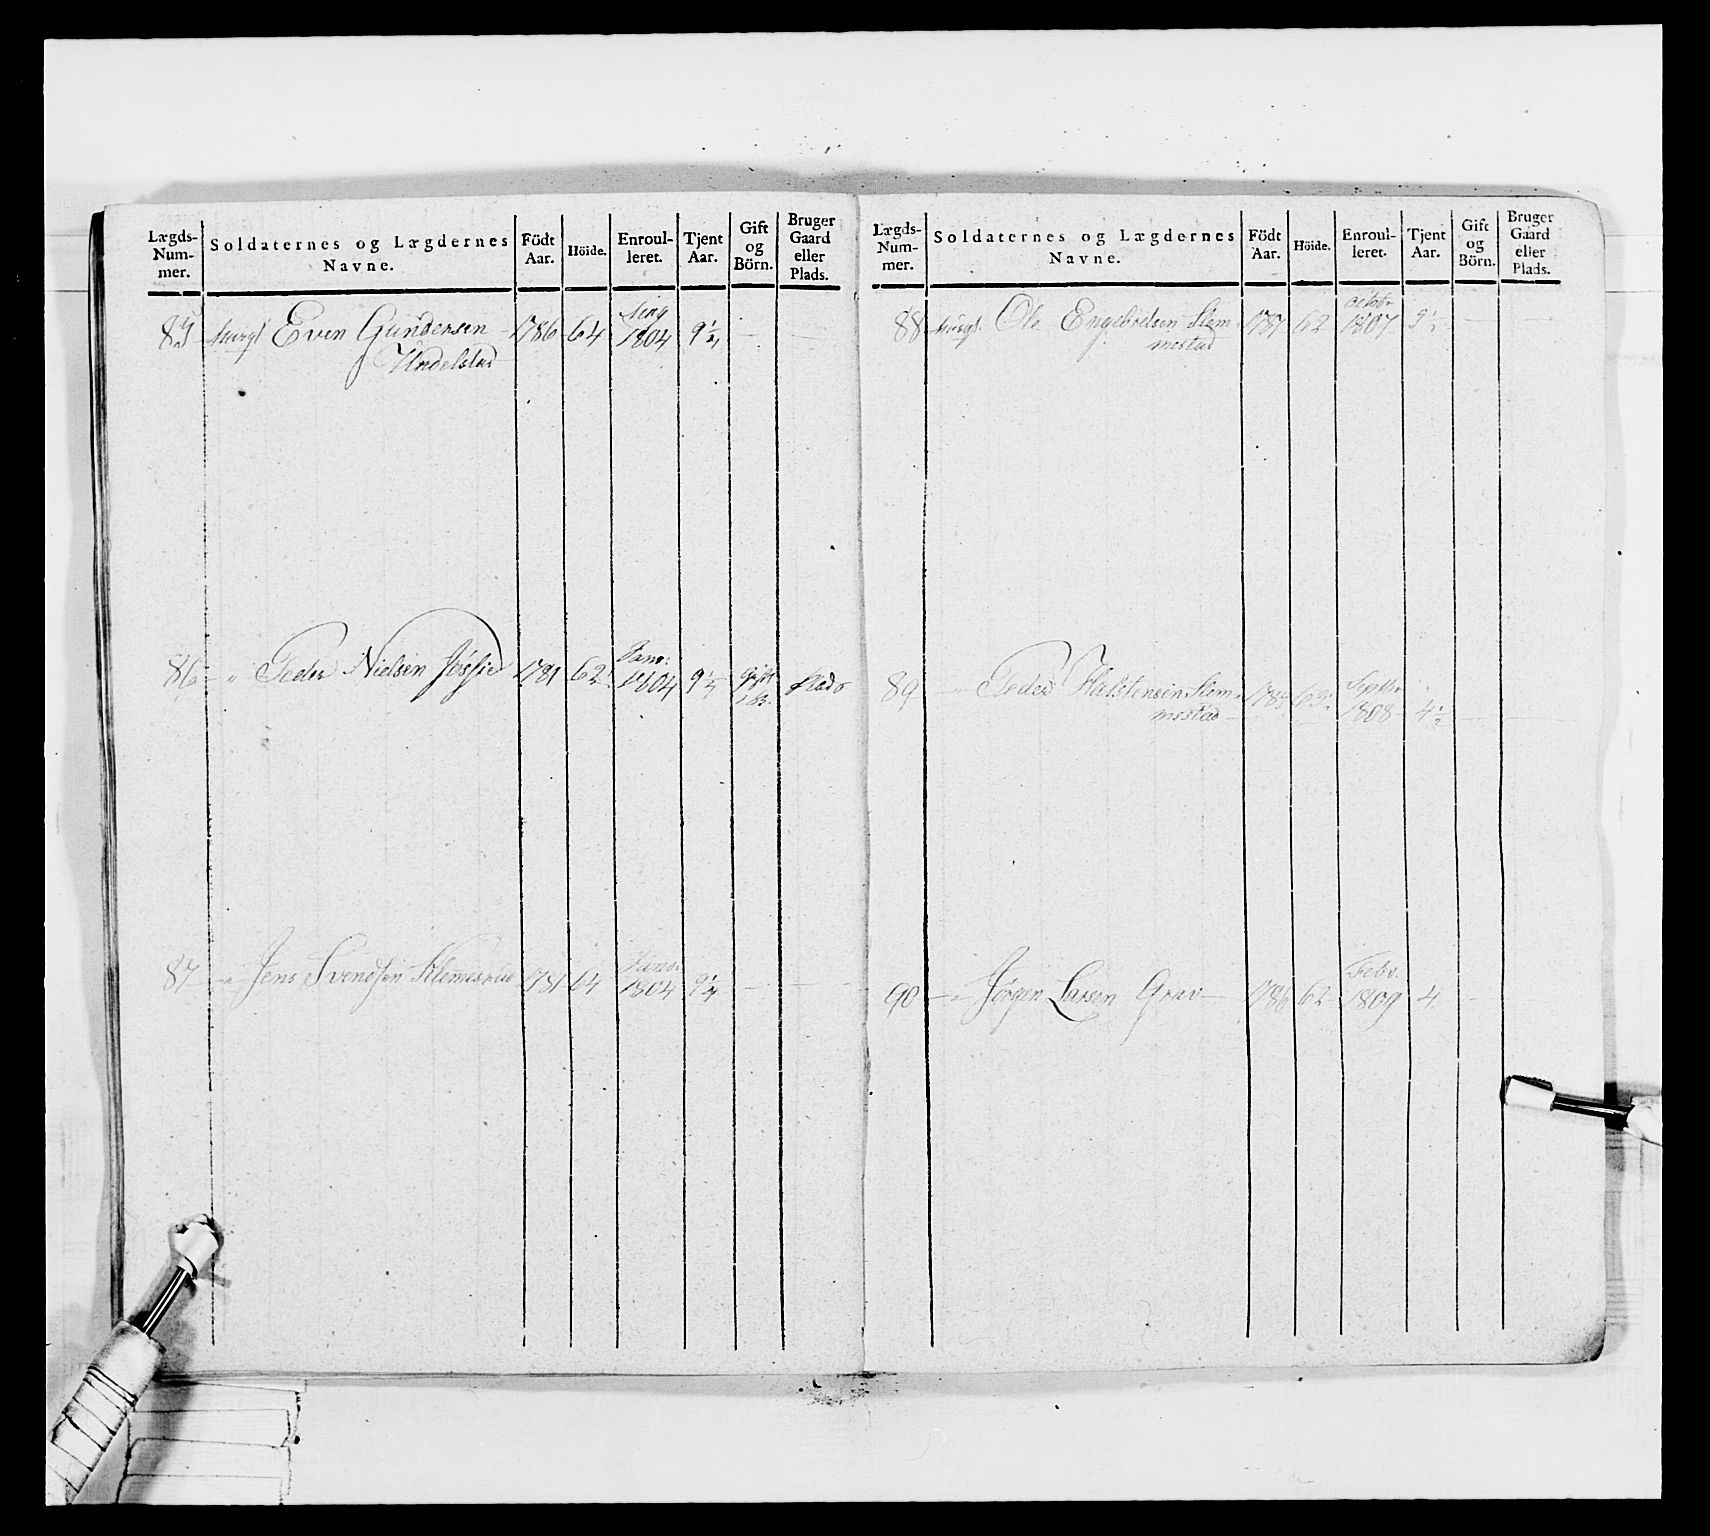 Lægds-Num-mer. Soldaternes og Lægdernes Navne. Födt Aar. Höide. Enroul-leret. Tjent Aar. Gift og Börn. Bruger Gaard eller Plads.
85 Even Gundersen 1786 64 1804 9 1/4
Undelstad
86 " Peder Nielsen 1781 62 Janv: 1804 9 1/4 Gift 1 B. Plads
87 " Jens Svendsen Klemesrud 1781 64 Janv. 1804 9 1/4
Lægds-Num-mer. Soldaternes og Lægdernes Navne. Födt Aar. Höide. Enroul-leret. Tjent Aar. Gift og Börn. Bruger Gaard eller Plads.
88 Ole Engebretsen Slem 1787 62 octobr 1807
mestad
89 " Peder Halstensen Slem Septbr 1808 4 1/2
mestad
90 " Jørgen Larsen Grav 1786 62 Febr. 1809 4